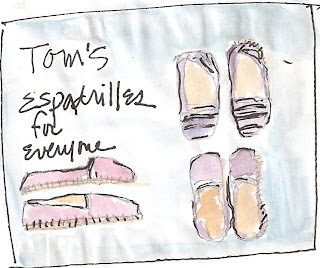 Tom's
espadrilles
for
everyone